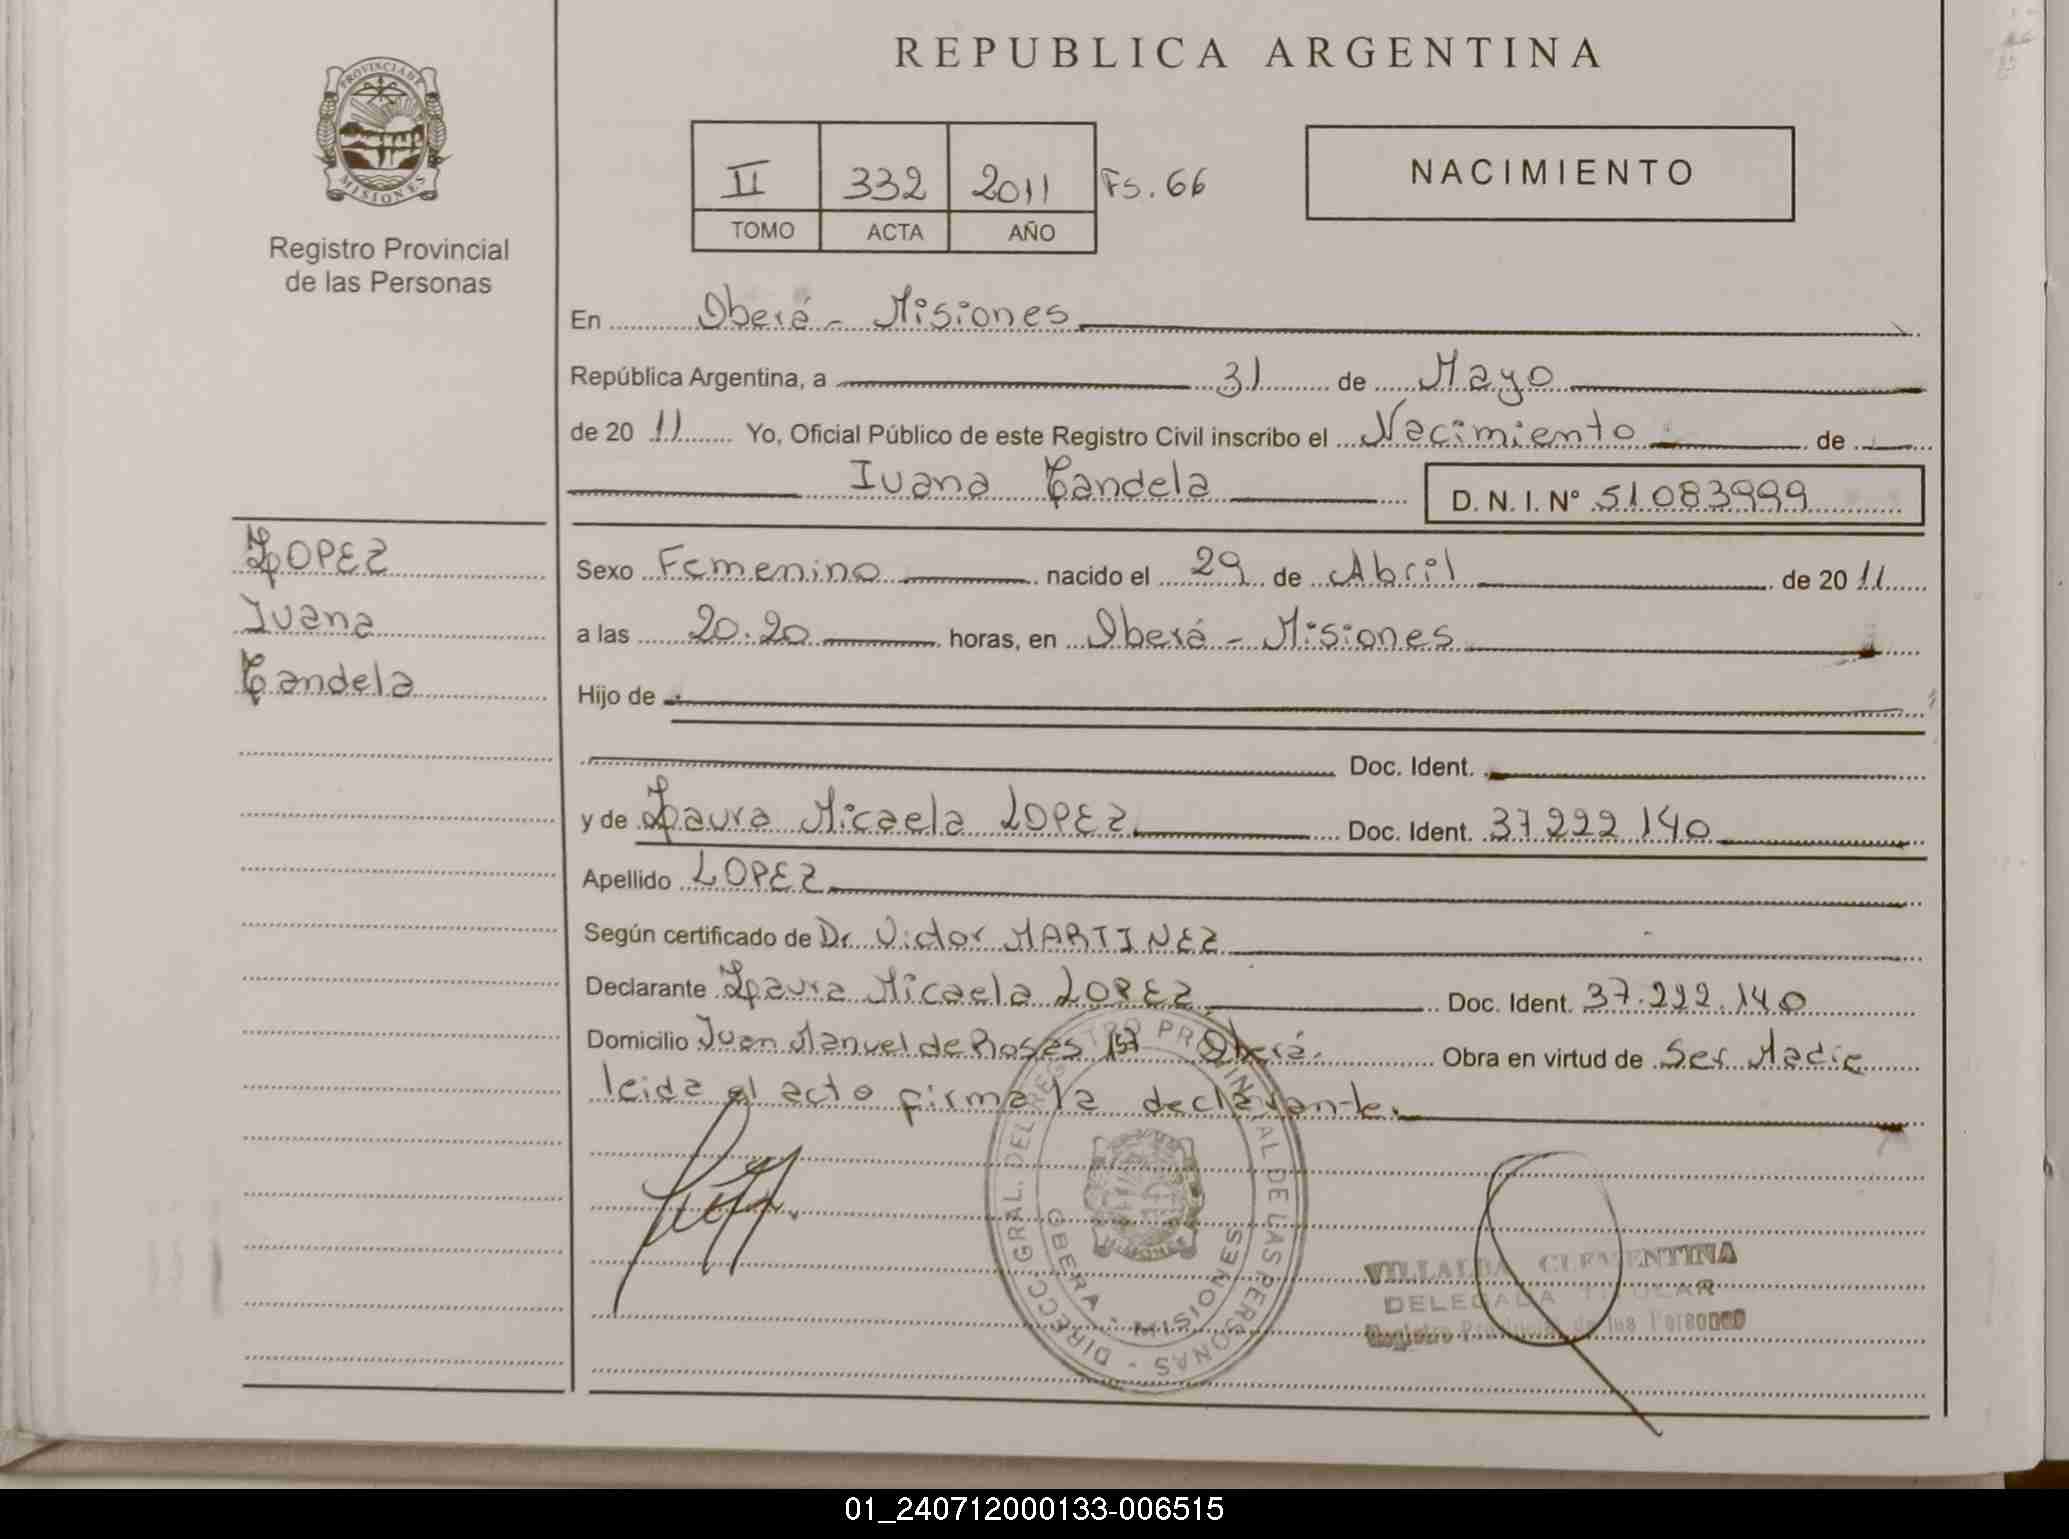 REPUBLICA ARGENTINA
PROVINCIA DE MISIONES
Registro Provincial
de las Personas
II 332 2011 Fs. 66
TOMO ACTA AÑO
NACIMIENTO
En Oberá - Misiones
República Argentina, a 31 de Mayo
de 20 11 Yo, Oficial Público de este Registro Civil inscribo el Nacimiento de
Iuana Candela D. N. I. Nº 51083999
LOPEZ
Iuana
Candela
Sexo Femenino nacido el 29 de Abril de 20 11
a las 20.20 horas, en Oberá - Misiones
Hijo de
Doc. Ident.
y de Laura Micaela LOPEZ Doc. Ident. 37222140
Apellido LOPEZ
Según certificado de Dr Victor MARTINEZ
Declarante Laura Micaela LOPEZ Doc. Ident. 37.222.140
Domicilio Juan Manuel de Rosas Oberá. Obra en virtud de Ser Madre
leida el acto firma la declarante.
DIRECC. GRAL. DEL REGISTRO PROVINCIAL DE LAS PERSONAS
OBERA - MISIONES
VILLALBA CLEMENTINA
DELEGADA TITULAR
Registro Provincial de las Personas
01_240712000133-006515